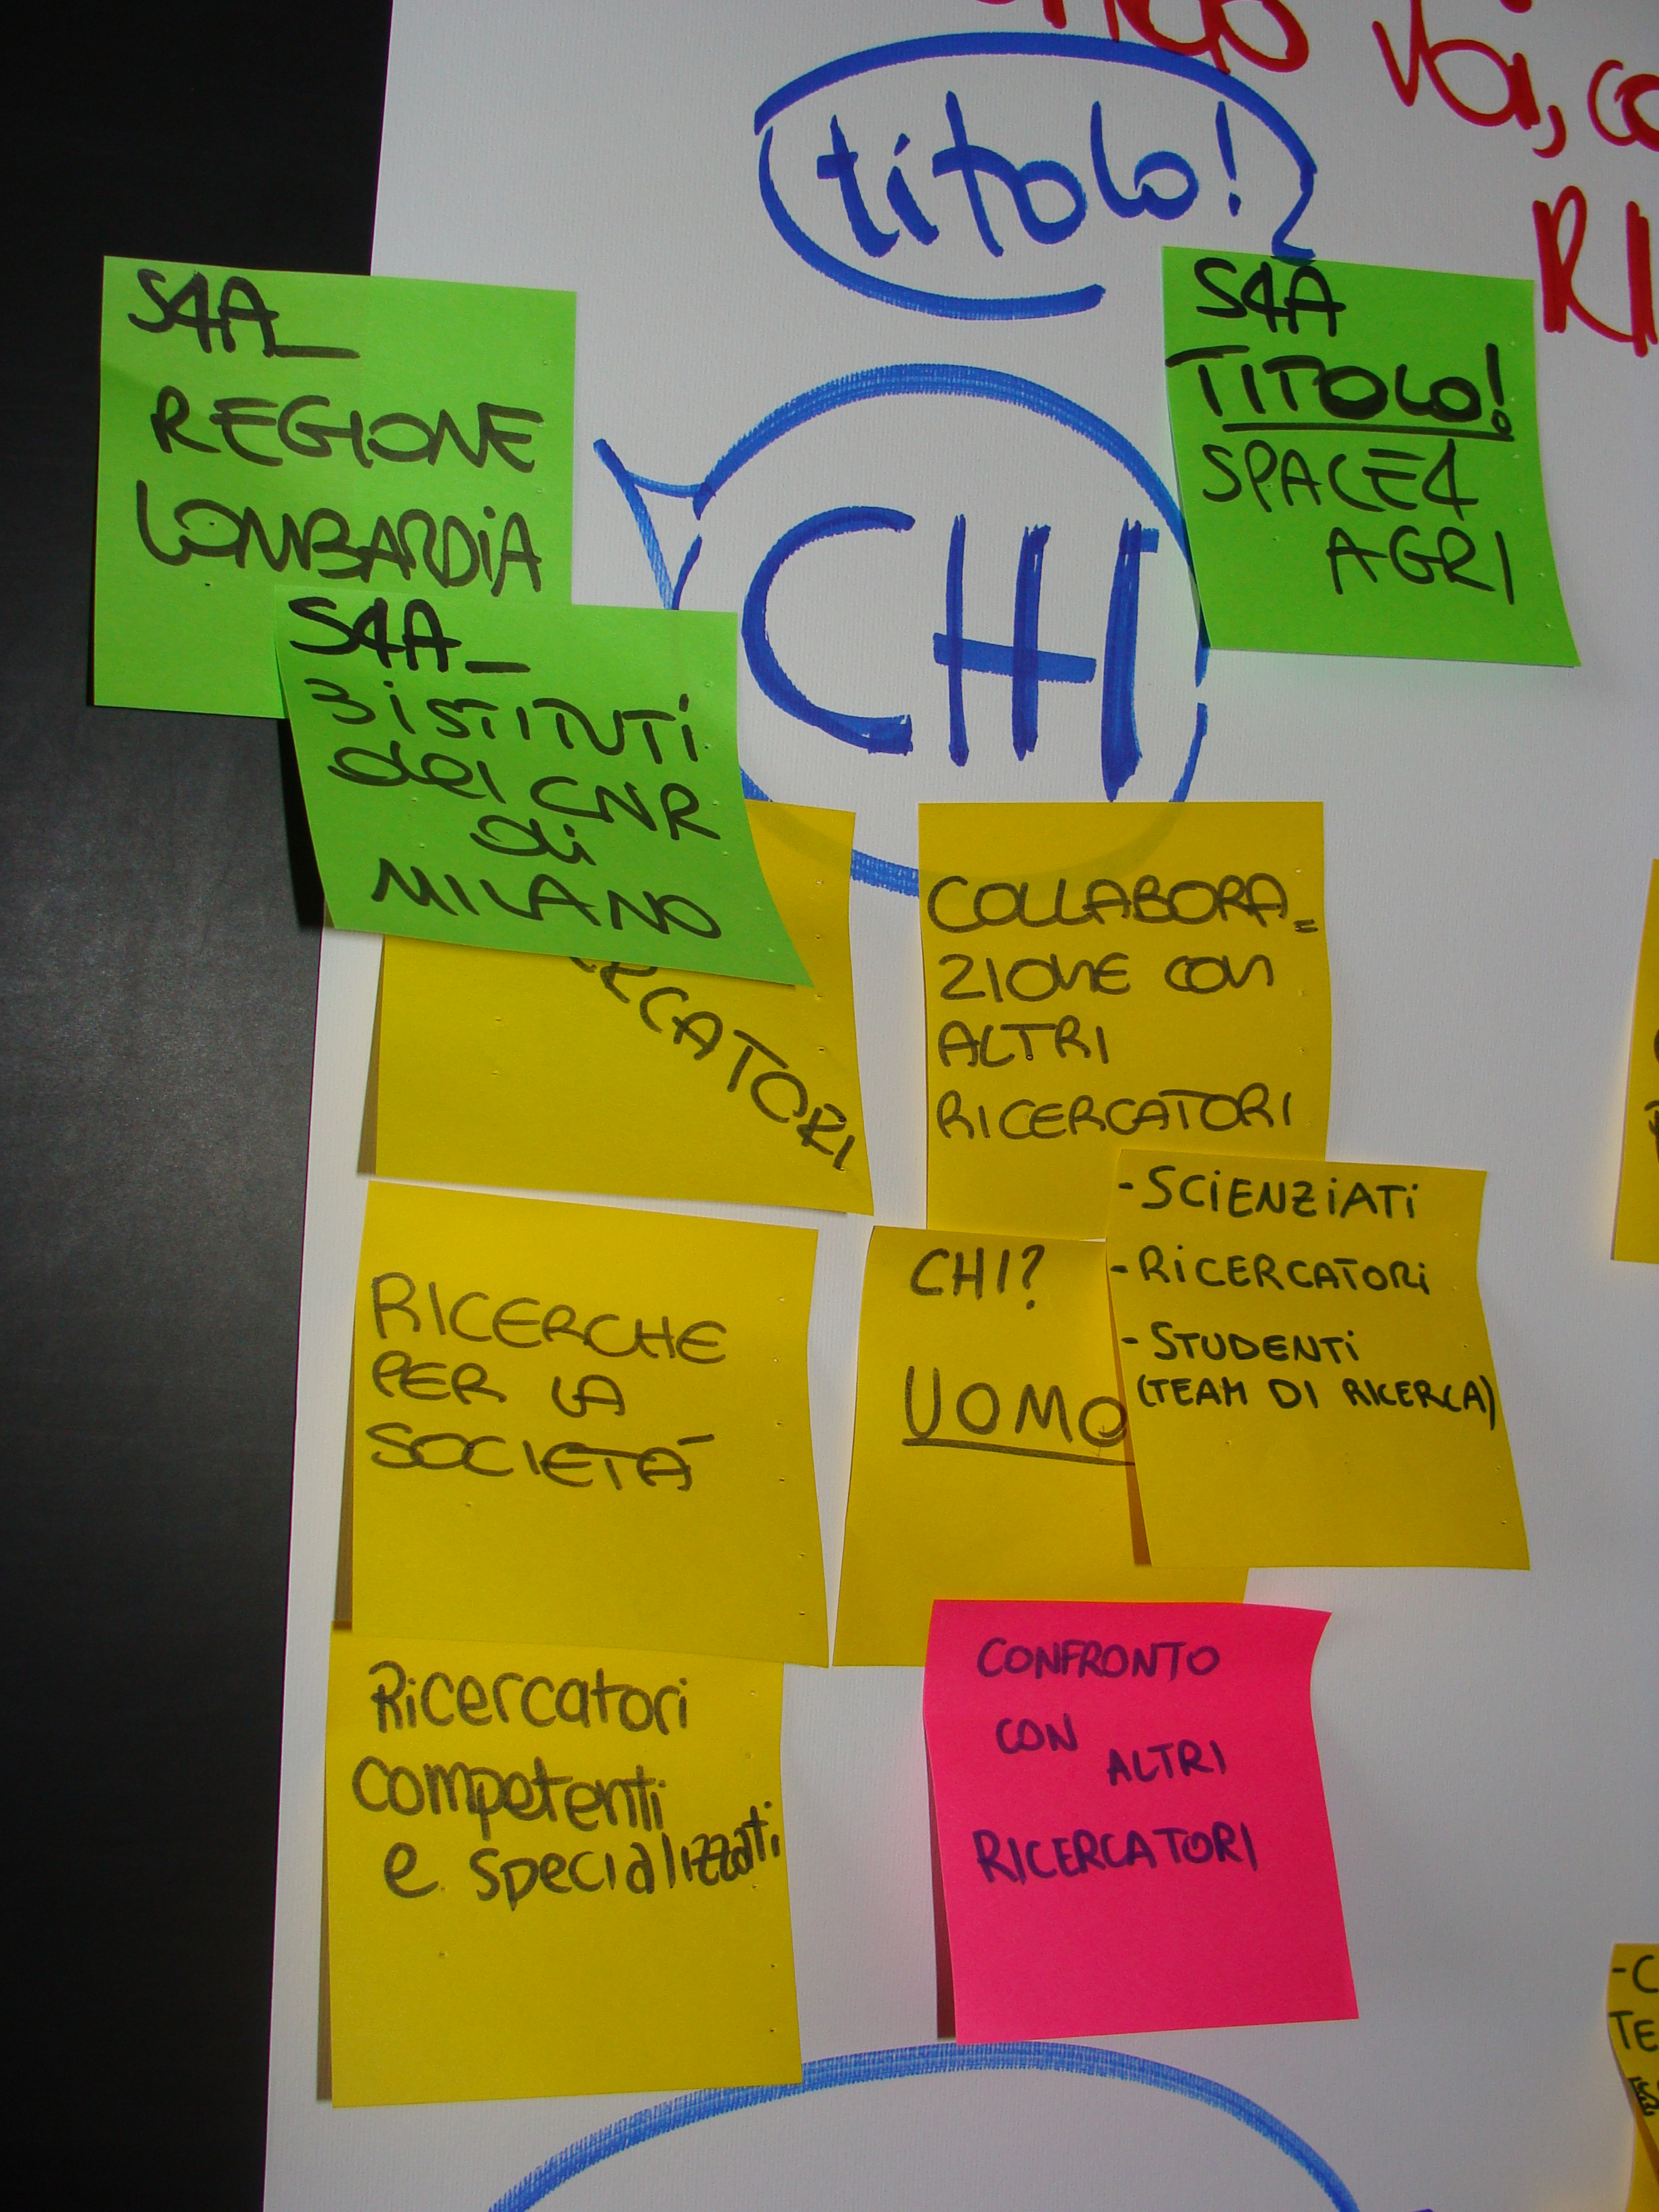 voi, co
titolo!
RI
S4A_
REGIONE
LOMBARDIA
S4A
TITOLO!
SPACE4
AGRI
CHI
S4A_
3 iSTITUTi
del CNR
di
MILANO
COLLABORA=
ZIONE CON
ALTRI
RICERCATORI
RCATORI
-SCiENZiATi
-RiCERCATORi
-STUDENTi
(TEAM DI RICERCA)
CHI?
UOMO
RICERCHE
PER LA
SOCIETÀ
Ricercatori
competenti
e specializzati
CONFRONTO
CON
ALTRI
RICERCATORI
-C
TE